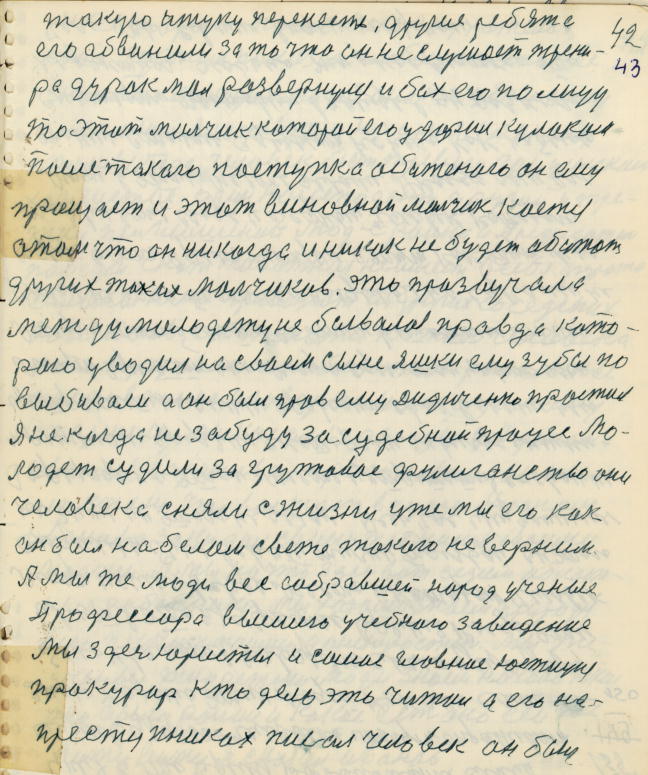 такую штуку перенесть, другие ребята
42
его обвинили за то что он не слушает трени-
43
ра дурак мол развернулся и бах его по лицу
то этот молчик которой его ударил кулаком
после такого поступка обиженого он ему
прощает и этот виновной молчик
о том что он никогда и никак не будет обижат
других таких молчиков. это прозвучала
между молодежу не бывалоя правда кото-
рого уводил на своем сыне яшки ему зубы по
выбивали а он был прав ему Дидиченко простил
я некогда не забуду за судебной процес Мо-
лодеж судили за групповое фулиганство они
человека сняли с жизни уже мы его как
он был на белом свете такого не верним.
А мы же люди все собравшей народ ученые
Профессора высшего учебного заведение
мы здеч юристы и самое главное
прокурор кто дело это читал а его на-
преступниках писал человек он был